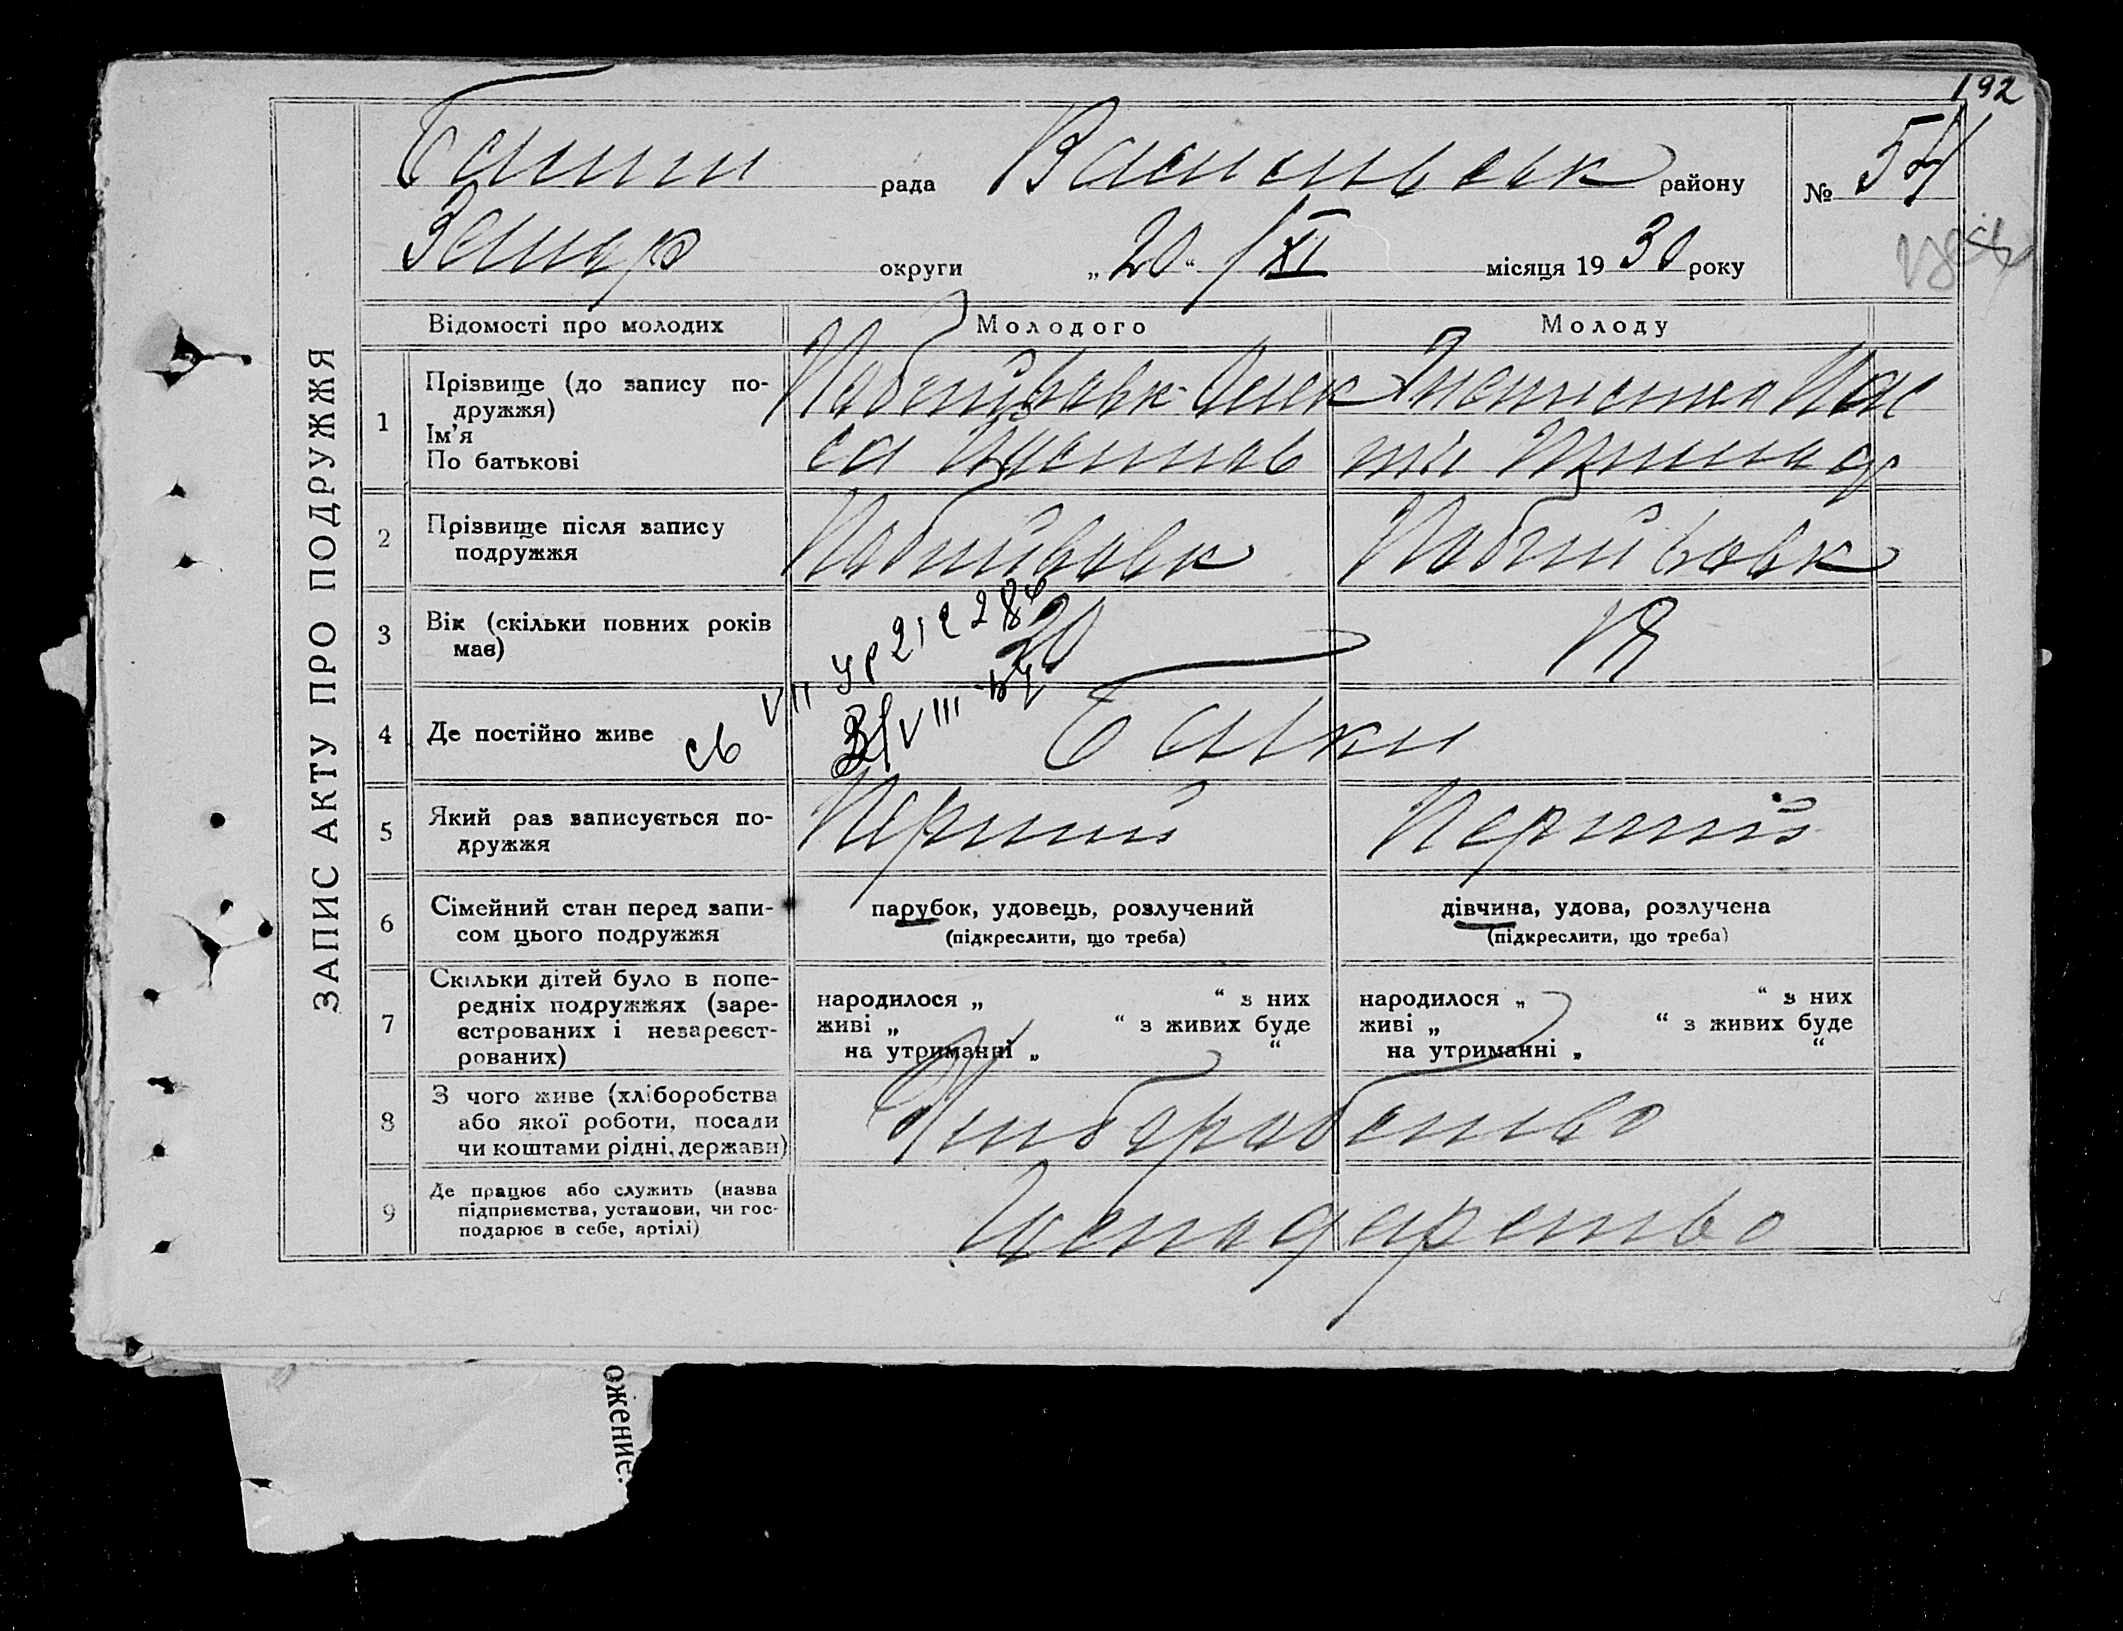 192
рада Васильевск району № 54
округи „ 20 “ /XI місяця 19 30 року
Відомості про молодих Молодого Молоду
ЗАПИС АКТУ ПРО ПОДРУЖЖЯ
1 Прізвище (до запису по-
дружжя)
Ім'я
По батькові
2 Прізвище після запису
подружжя
Побийвовк Побийвовк
3 Вік (скільки повних років
має)
20
4 Де постійно живе
Балки
5 Який раз записується по-
дружжя
Перший Перший
6 Сімейний стан перед запи-
сом цього подружжя
парубок, удовець, розлучений
(підкреслити, що треба)
дівчина, удова, розлучена
(підкреслити, що треба)
7 Скільки дітей було в попе-
редніх подружжях (заре-
єстрованих і незареєст-
рованих)
народилося „ “ з них
живі „ “ з живих буде
на утриманні „ “
народилося „ “ з них
живі „ “ з живих буде
на утриманні „ “
8 З чого живе (хліборобства
або якої роботи, посади
чи коштами рідні, держави)
Хлиборобство
9 Де працює або служить (назва
підприємства, установи, чи гос-
подарює в себе, артілі)
Господарство
ожение.